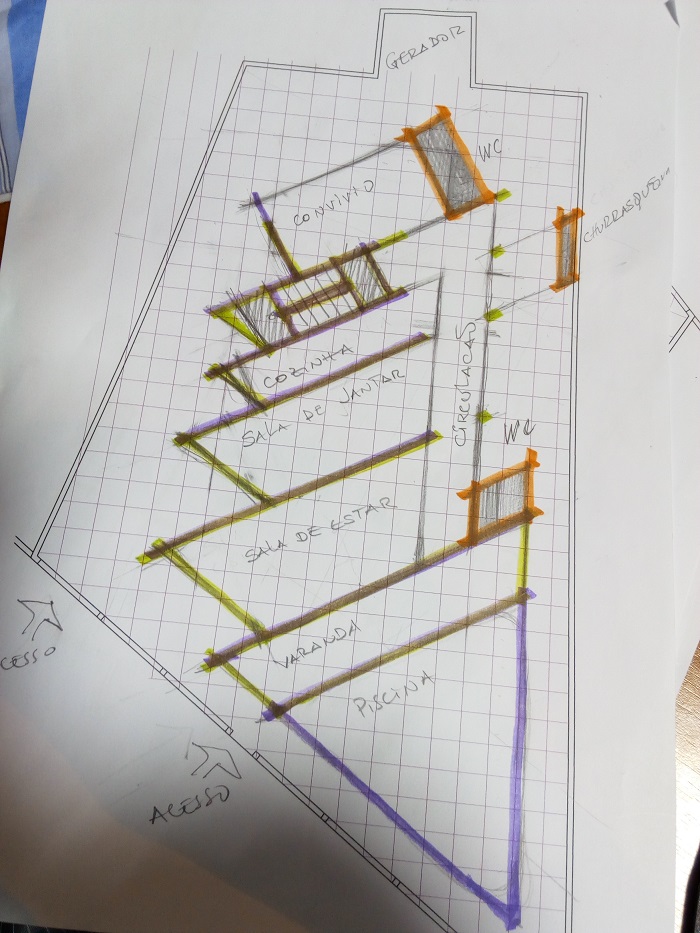 GERADOR
WC
CONVIVIO
CIRCULACAO
COZINHA
SALA DE JANTAR
WC
SALA DE ESTAR
VARANDA
CESSO
PISCINA
ACESSO